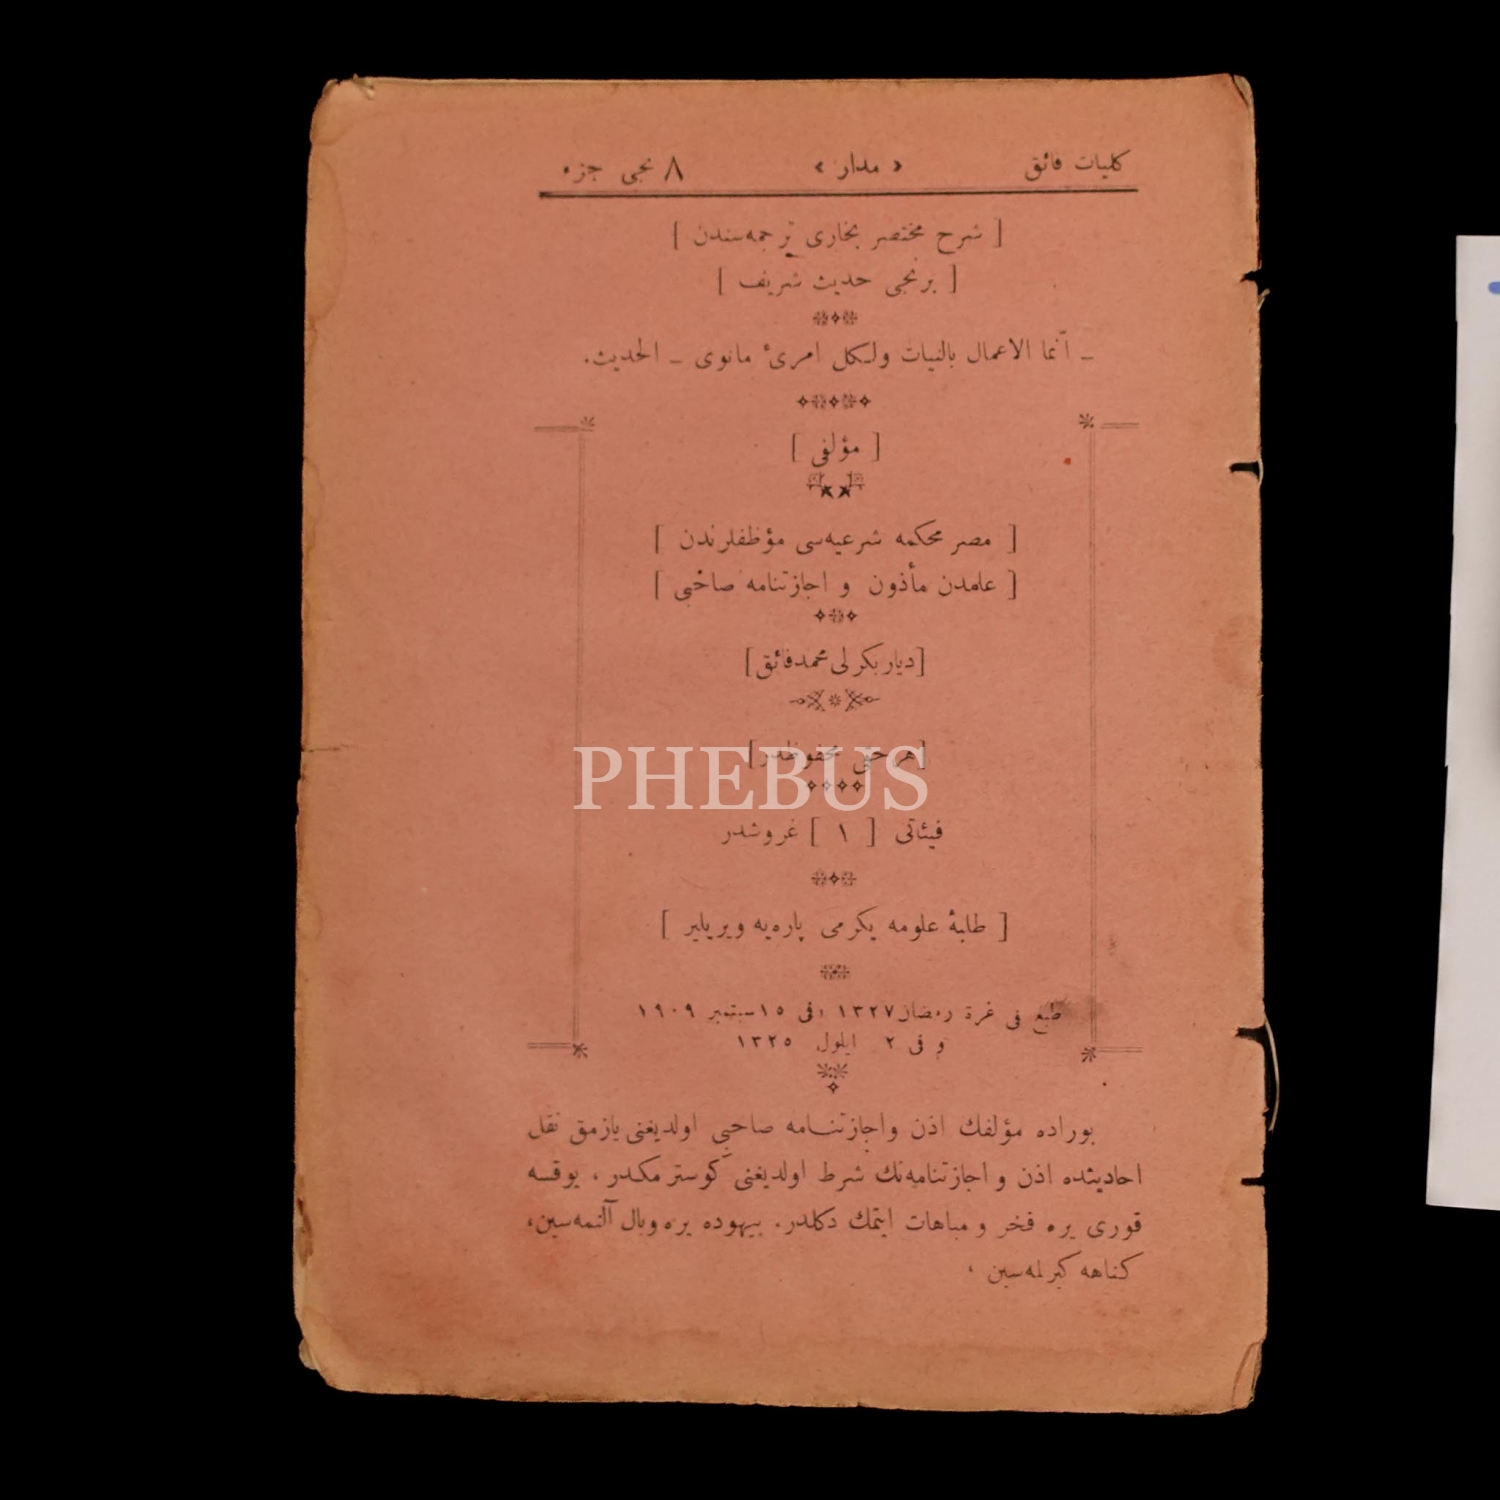 كليات فائق « مدار » ٨ نجى جزء
[ شرح مختصر بخارى ترجمه‌سندن ]
[ برنجى حديث شريف ]
ـ انما الاعمال بالنيات ولكل امرئ مانوى ـ الحديث.
[ مؤلفى ]
[ مصر محكمه شرعيه‌سى مؤظفلرندن ]
[ عامدن مأذون و اجازتنامه صاحبى ]
[دياربكرلى محمدفائق]
[هر حقى محفوظدر]
PHEBUS
فيئاتى [ ١ ] غروشدر
[ طلبۀ علومه يكرمى پاره‌يه ويريلير ]
طبع فى غرة رمضان ١٣٢٧ وفى ١٥ سبتمبر ١٩٠٩
و فى ٢ ايلول ١٣٢٥
بوراده مؤلفك اذن واجازتنامه صاحبى اولديغنى يازمق نقل
احاديثده اذن و اجازتنامه‌نك شرط اولديغنى كوسترمكدر ، يوقسه
قورى يره فخر و مباهات ايتمك دكلدر. بيهوده يره وبال آلنمه‌سين،
كناهه كيرلمه‌سين ،